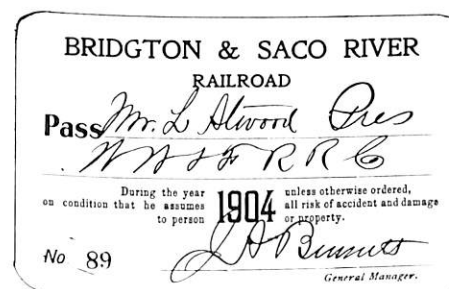 BRIDGTON & SACO RIVER
RAILROAD
Pass Mr. L Atwood Pres
W W & F R R Co
During the year 1904 unless otherwise ordered,
on condition that he assumes all risk of accident and damage
to person or property.
No 89 J A Bennett
General Manager.